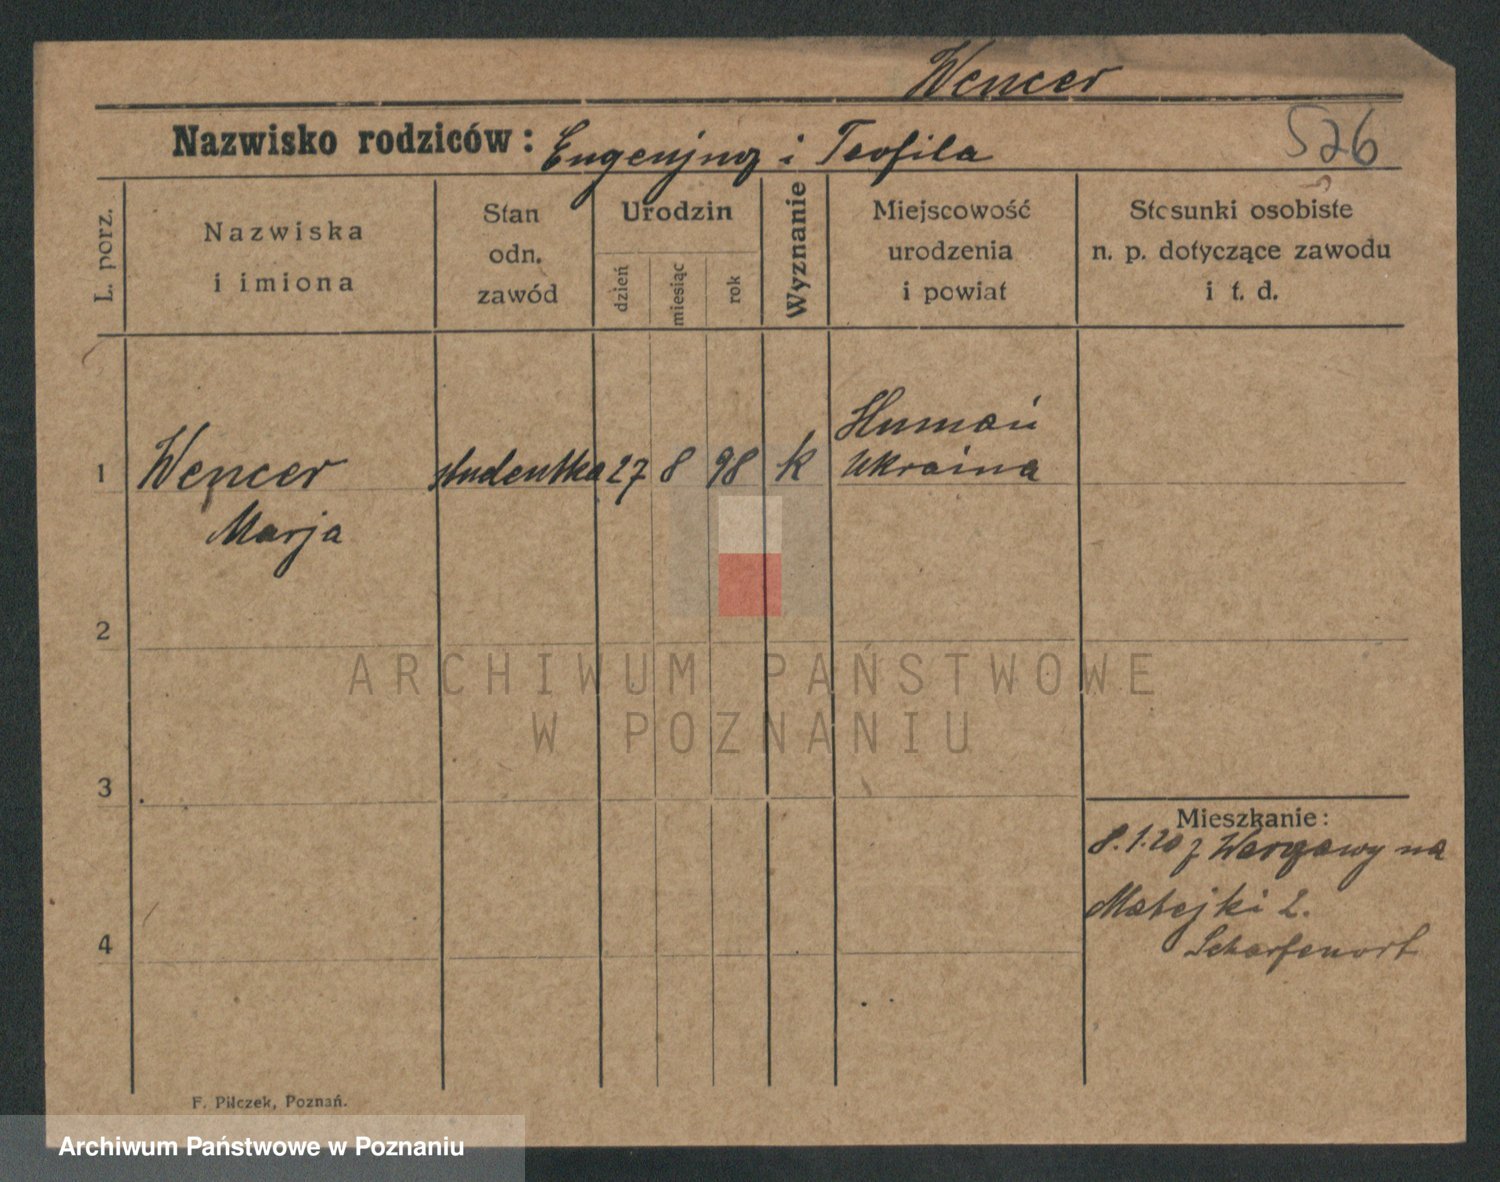 Wencer
Nazwisko rodziców: Eugenjusz i Teofila
526
L. porz.
Nazwiska
i imiona
Stan
odn.
zawód
Urodzin
dzień
miesiąc
rok
Wyznanie
Miejscowość
urodzenia
i powiat
Stosunki osobiste
n. p. dotyczące zawodu
i t. d.
1
Wencer
Marja
studentka
27
8
98
k
Humań
Ukraina
2
3
4
Mieszkanie:
8.1.20 z Warszawy na
Matejki 2.
Scharfenort
F. Pilczek, Poznań.
ARCHIWUM PAŃSTWOWE
W POZNANIU
Archiwum Państwowe w Poznaniu